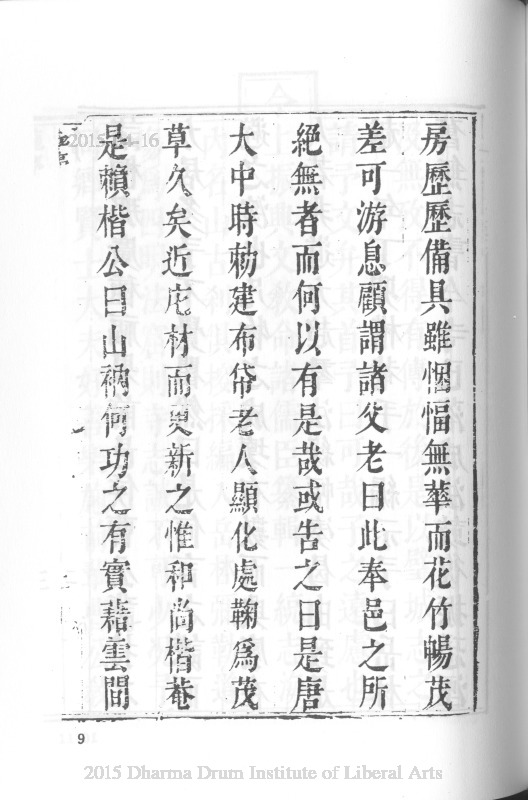 房歷歷備具雖悃愊無華而花竹暢茂
差可游息顧謂諸父老曰此奉邑之所
絕無者而何以有是哉或告之曰是唐
大中時勅建布帒老人顯化處鞠爲茂
草久矣近庀材而更新之惟和尚楷菴
是賴楷公曰山衲何功之有實藉雲間
9
2015 Dharma Drum Institute of Liberal Arts